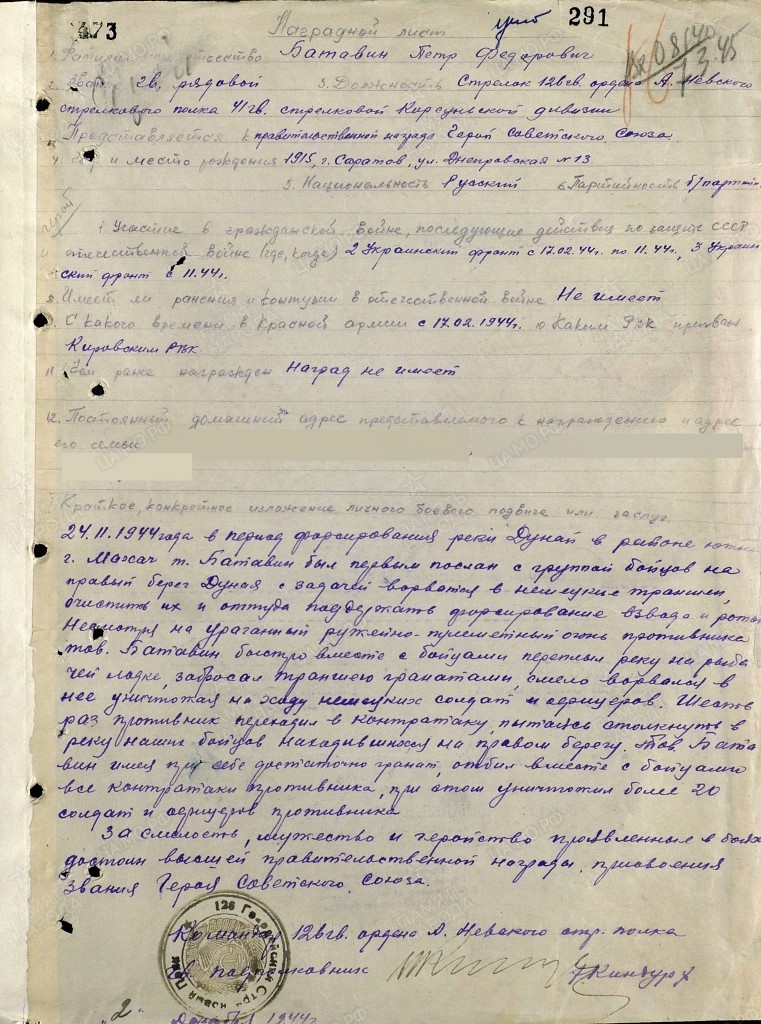 473 291
Наградной лист
Батавин Петр Федорович
гв. рядовой 3. Должность Стрелок 126гв. ордена А. Невского
стрелкового полка 41гв. стрелковой Корсуньской дивизии
Представляется к правительственной награде Герой Советского Союза.
4. и место рождения 1915, г. Саратов, ул. Днепровская № 13
5. Национальность Русский 6. Партийность б/партийн
герой
7. Участие в гражданской войне, последующие действия по защите СССР
и отечественной войне (где, когда) 2 Украинский фронт с 17.02.44г. по 11.44г., 3 Украин
ский фронт с 11.44г.
8. Имеет ли ранения и контузии в отечественной войне Не имеет
С какого времени в Красной армии с 17.02.1944г. 10 Каким РВК призван
Кировским РВК
11. Чем ранее награжден Наград не имеет
12. Постоянный домашний адрес представляемого к награждению и адрес
его семьи
Краткое, конкретное изложение личного боевого подвига или заслуг.
24.11.1944 года в период форсирования реки Дунай в районе южн
г. Мохач т. Батавин был первым послан с группой бойцов на
правый берег Дуная с задачей ворватся в немецкие траншеи,
очистить их и оттуда поддержать форсирование взвода и роты
Несмотря на ураганный ружейно-пулеметный огонь противника
тов. Батавин быстро вместе с бойцами переплыл реку на рыба
чей лодке, забросал траншею гранатами, смело ворвался в
нее уничтожая на ходу немецких солдат и офицеров. Шесть
раз противник переходил в контратаку, пытаясь столкнуть в
реку наших бойцов находившихся на правом берегу. Тов. Бата
вин имея при себе достаточно гранат, отбил вместе с бойцами
все контратаки противника, при этом уничтожил более 20
солдат и офицеров противника
За смелость, мужество и геройство проявленные в боях
достоин высшей правительственной награды, присвоения
звания Героя Советского Союза.
Командир 126гв. ордена А. Невского стр. полка
гв подполковник
"2" Декабря 1944г.